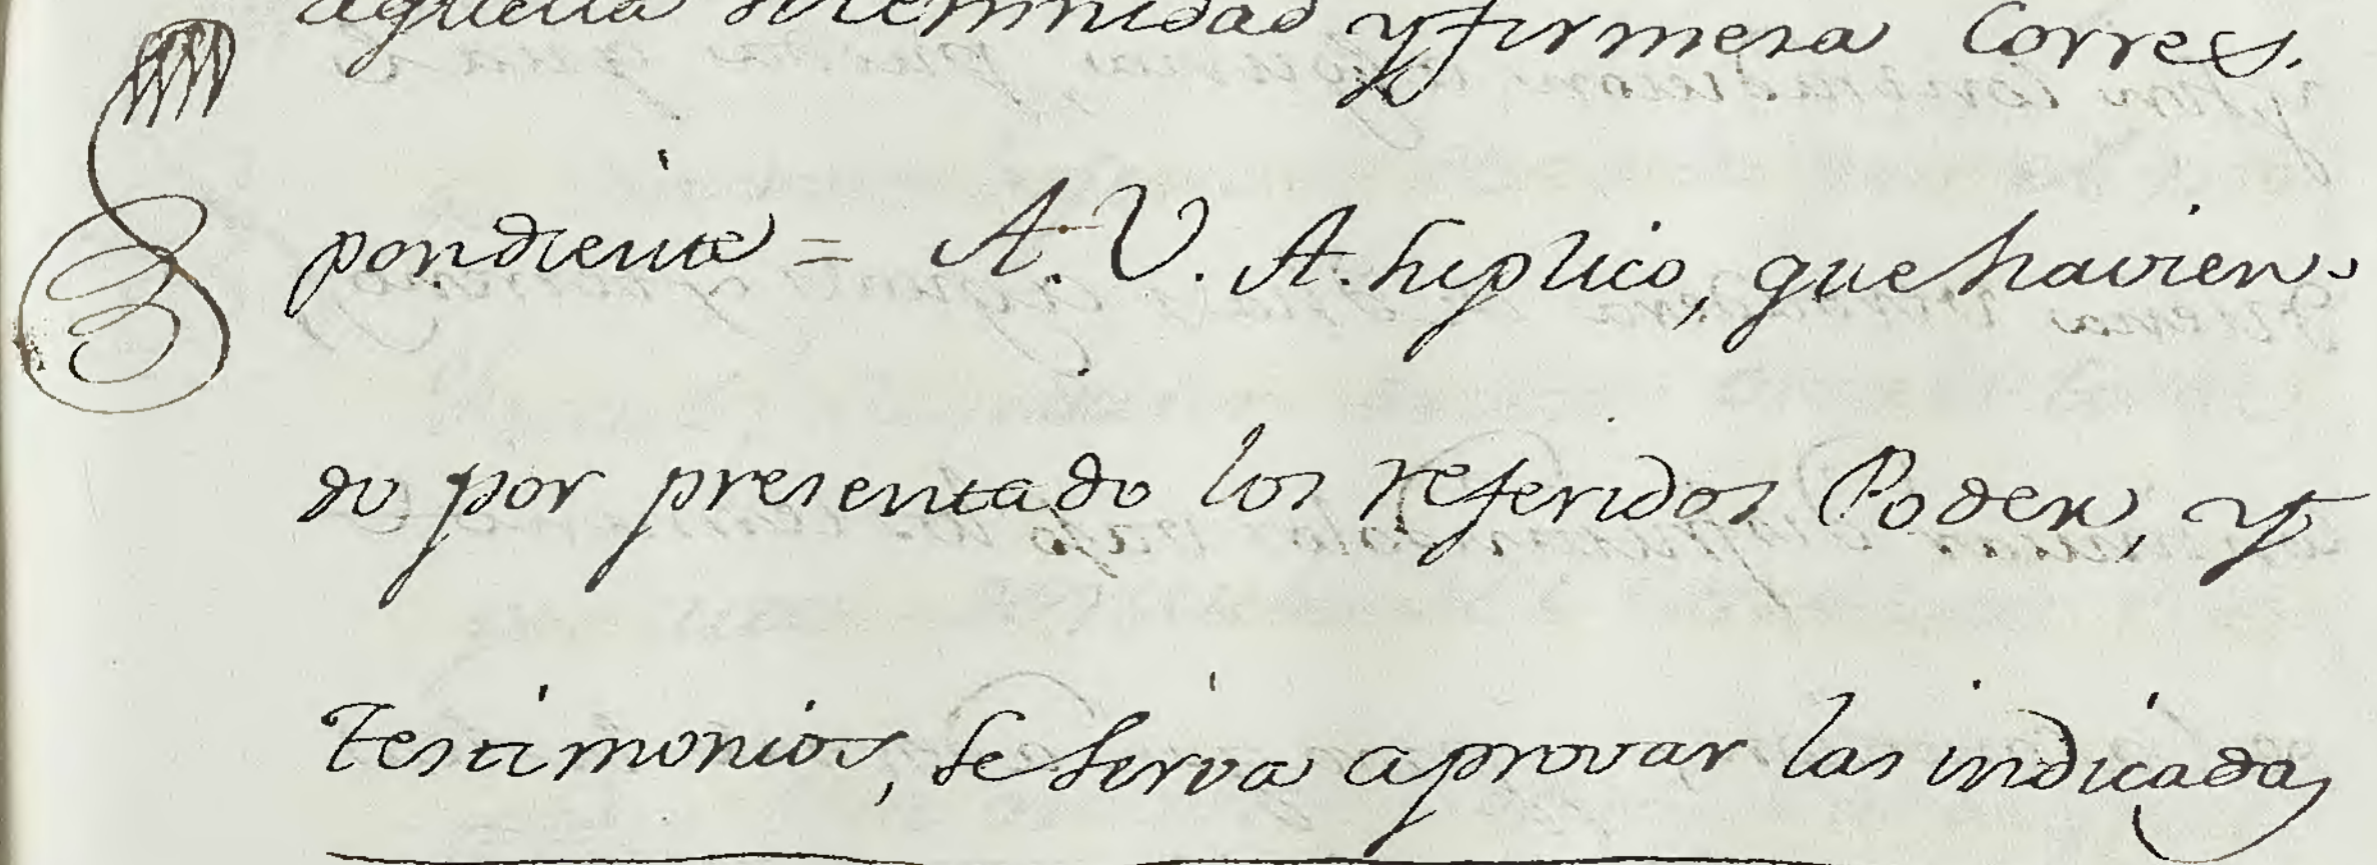 aquella solemnidad y firmesa Corres-
pondiente = A. V. A. suplico, que havien-
do por presentado los referidos Poderes, y
testimonios, se sirva aprovar las indicadas